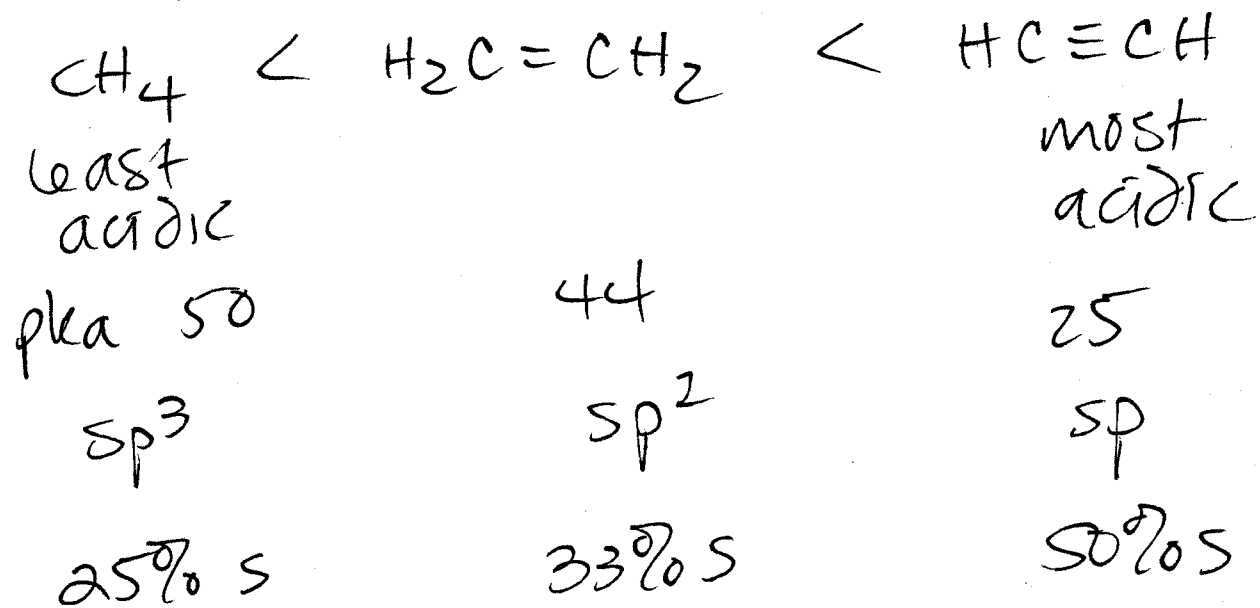 CH₄ < H₂C = CH₂ < HC ≡ CH
least most
acidic acidic
pka 50 44 25
sp³ sp² sp
25% s 33% s 50% s